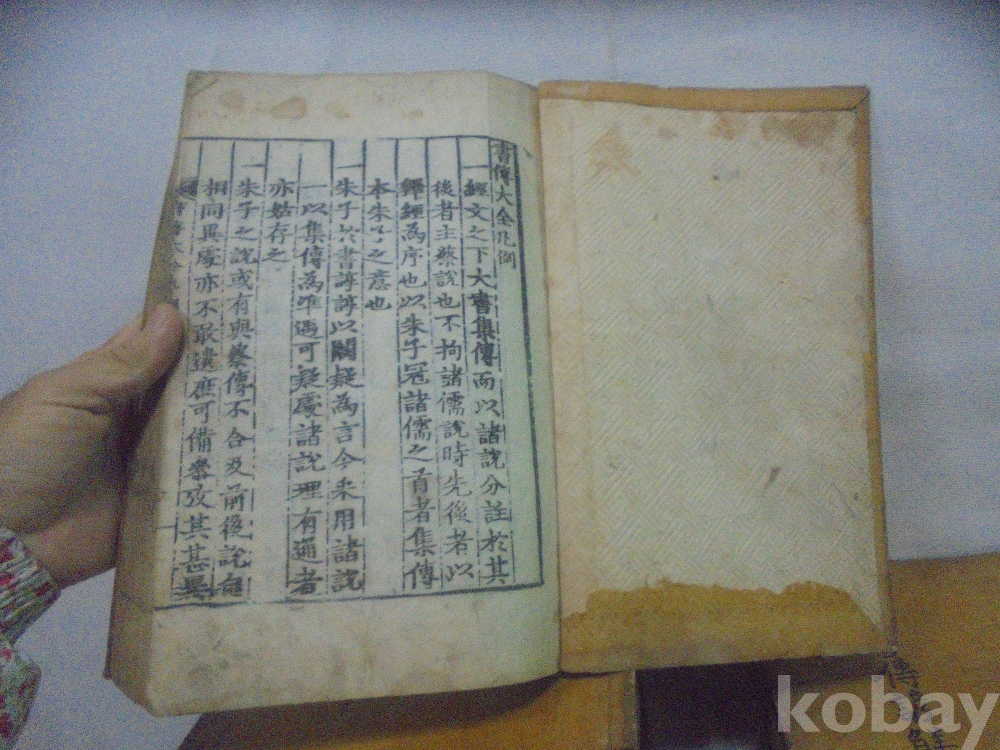 書傳大全凡例
一經文之下大書集傳而以諸說分註於其
後者主蔡說也不拘諸儒說時先後者以
釋經為序也以朱子冠諸儒之首者集傳
本朱子之意也
一朱子於書諄諄以闕疑為言今采用諸說
一以集傳為準過可疑處諸說理有通者
亦姑存之
一朱子之說或有與蔡傳不合及前後說自
相同異處亦不敢遺庶可備參攷其甚異
kobay